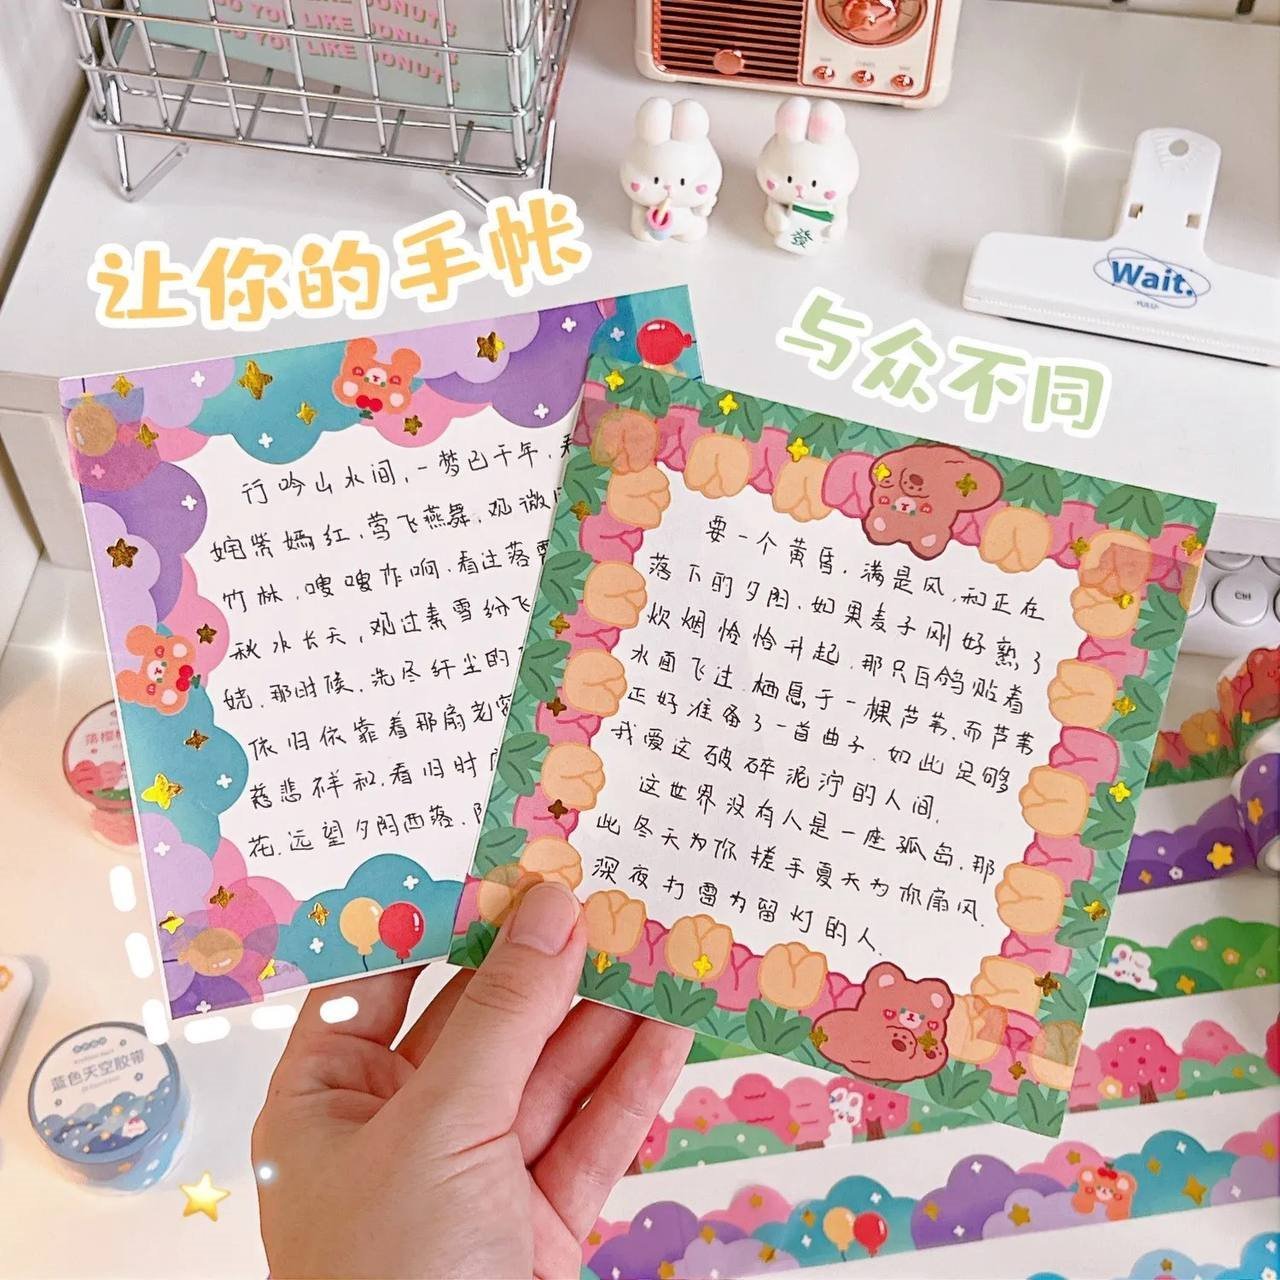 DO YOU LIKE DONUTS
DO YOU LIKE DONUTS
让你的手帐
与众不同
發
Wait.
Ctrl
行吟山水间，一梦已千年，看
姹紫嫣红，莺飞燕舞，观微
竹林，嗖嗖作响，看过落
秋水长天，观过素雪纷飞
娆，那时候，洗尽纤尘的
依旧依靠着那扇老窗
慈悲祥和，看旧时
花，远望夕阳西落，
要一个黄昏，满是风，和正在
落下的夕阳，如果麦子刚好熟了
炊烟恰恰升起，那只白鸽贴着
水面飞过，栖息于一棵芦苇，而芦苇
正好准备了一首曲子，如此足够
我爱这破碎泥泞的人间，
这世界没有人是一座孤岛，那
些冬天为你搓手夏天为你扇风，
深夜打雷为留灯的人，
落樱
蓝色天空胶带